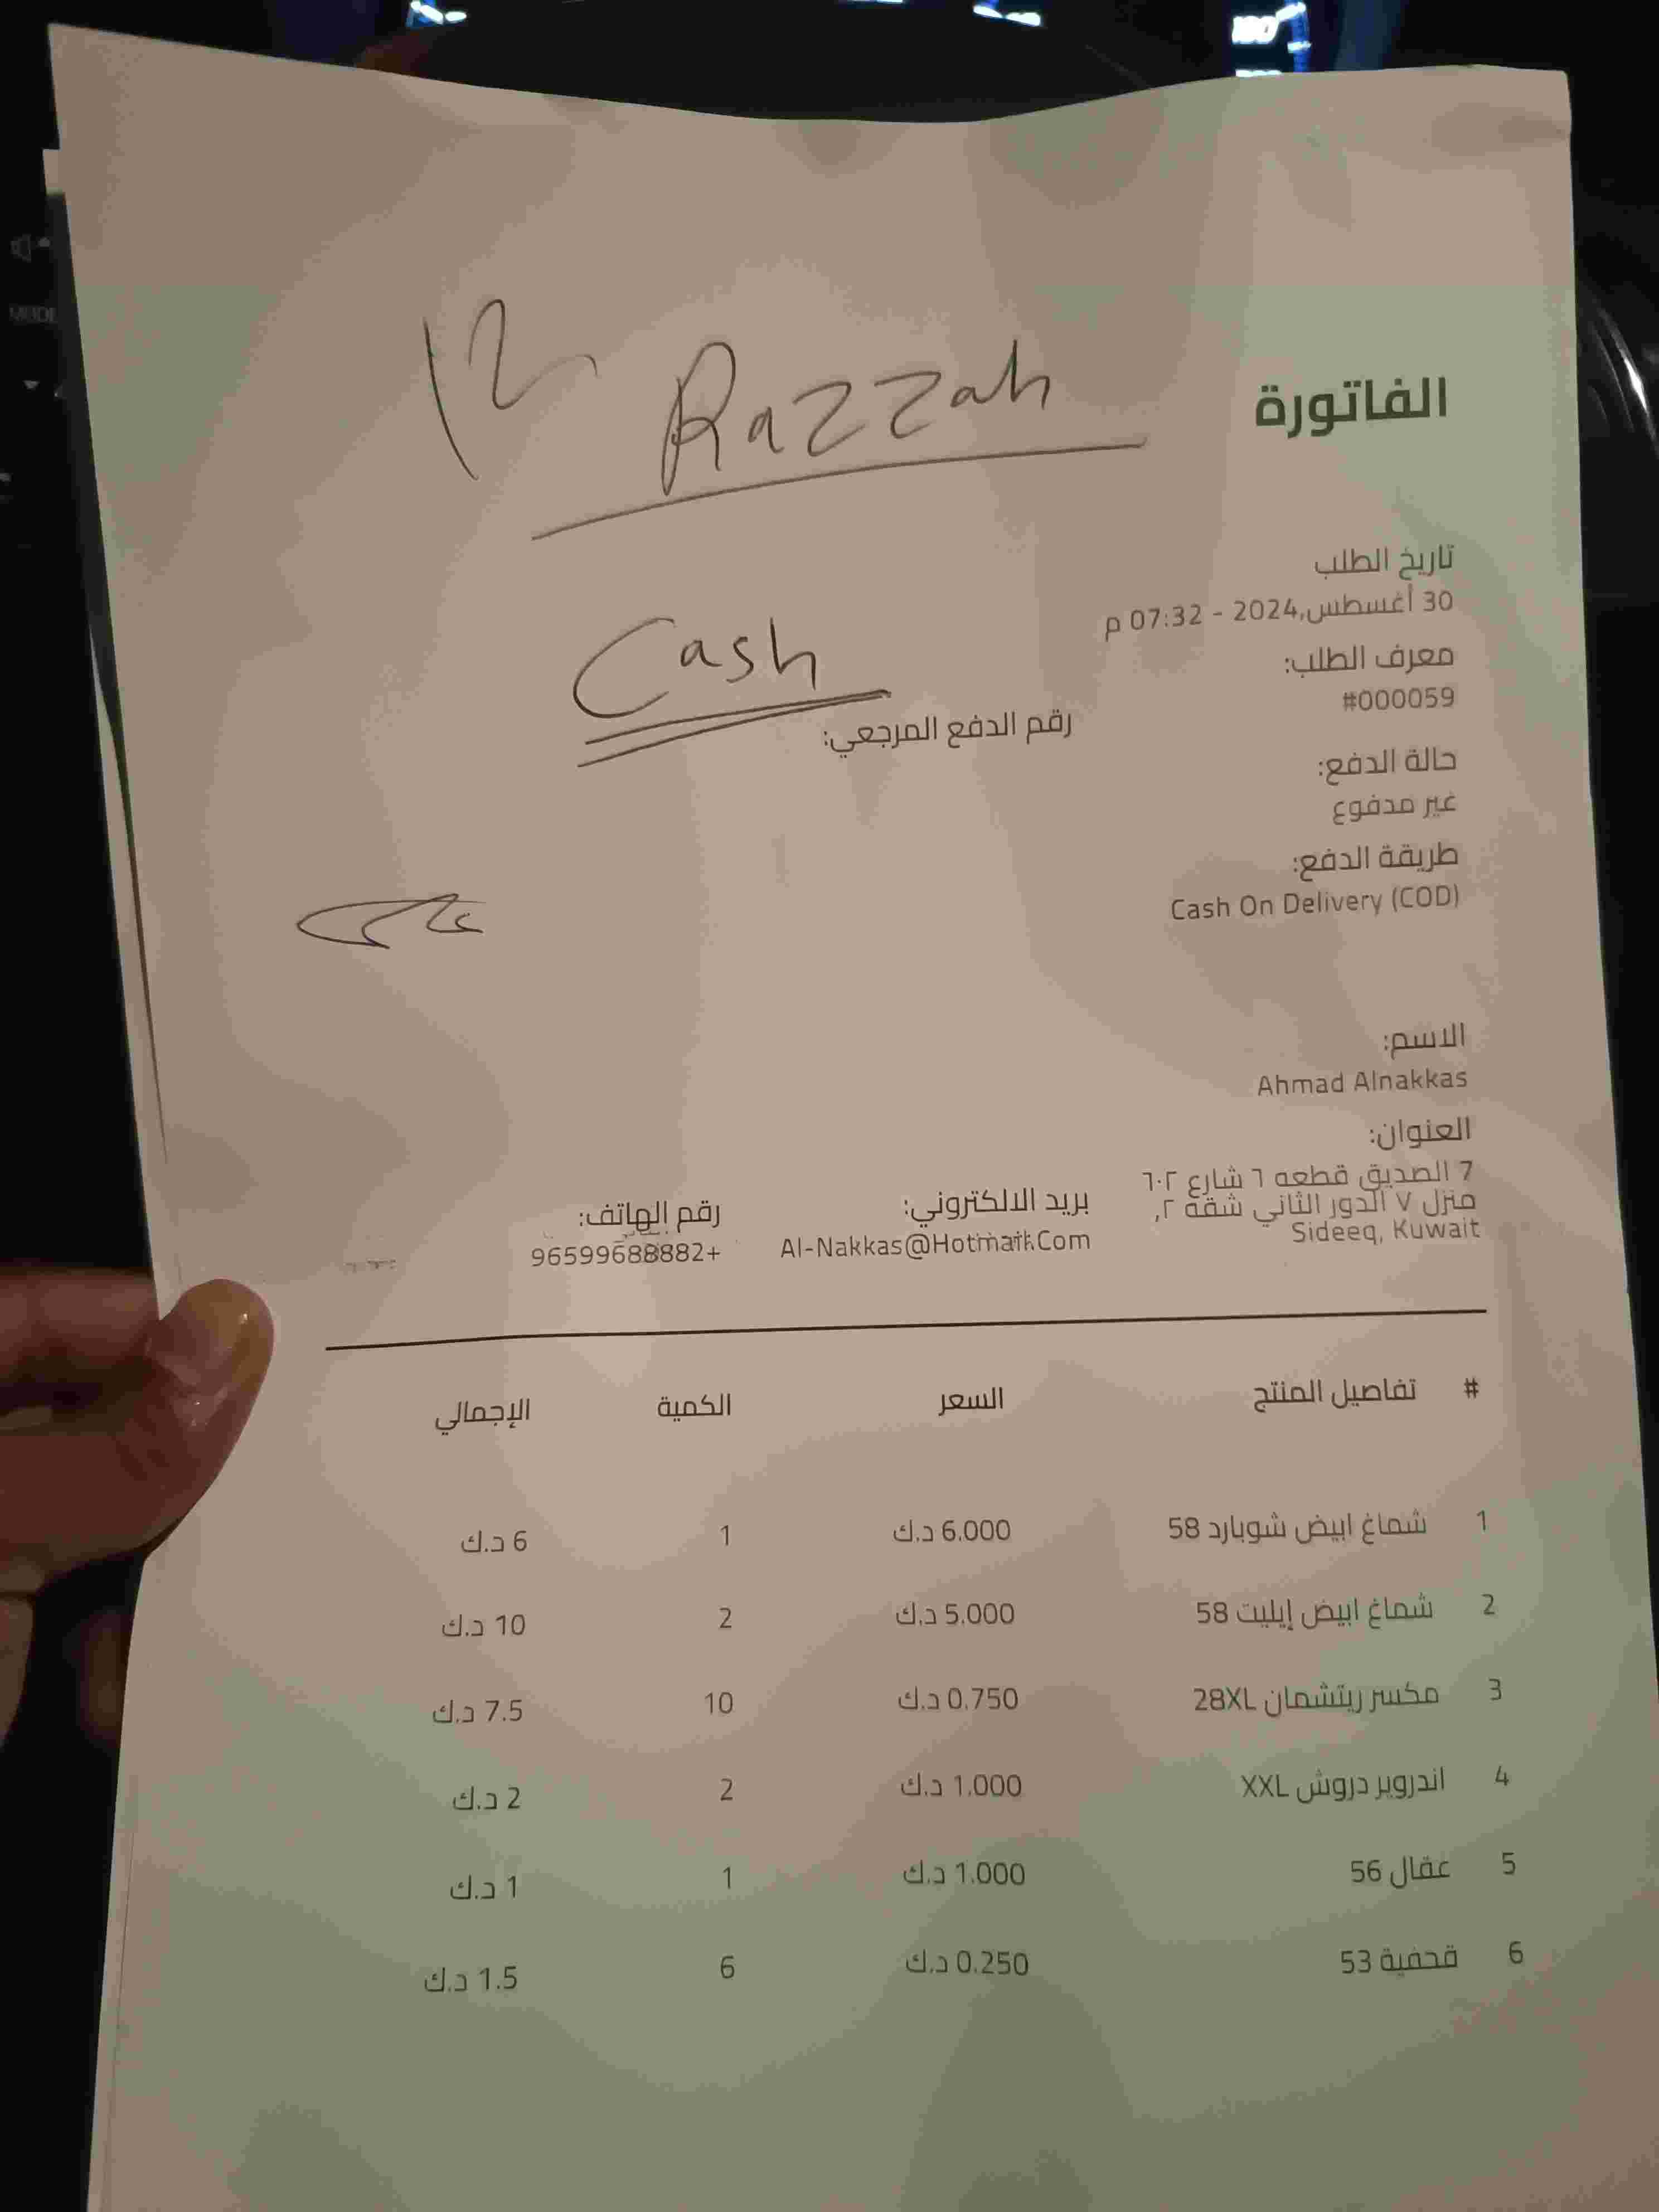 Razzah
الفاتورة
تاريخ الطلب
30 أغسطس,2024 - 07:32 م
Cash
معرف الطلب:
#000059
رقم الدفع المرجعي:
حالة الدفع:
غير مدفوع
طريقة الدفع:
Cash On Delivery (COD)
الاسم:
Ahmad Alnakkas
العنوان:
7 الصديق قطعه ٦ شارع ٦٠٢
منزل ٧ الدور الثاني شقة ٢,
Sideeq, Kuwait
بريد الالكتروني:
Al-Nakkas@Hotmail.Com
رقم الهاتف:
96599688882+
# تفاصيل المنتج السعر الكمية الإجمالي
1 شماغ ابيض شوبارد 58 6.000 د.ك 1 6 د.ك
2 شماغ ابيض إيليت 58 5.000 د.ك 2 10 د.ك
3 مكسر ريتشمان 28XL 0.750 د.ك 10 7.5 د.ك
4 اندروير دروش XXL 1.000 د.ك 2 2 د.ك
5 عقال 56 1.000 د.ك 1 1 د.ك
6 قحفية 53 0.250 د.ك 6 1.5 د.ك